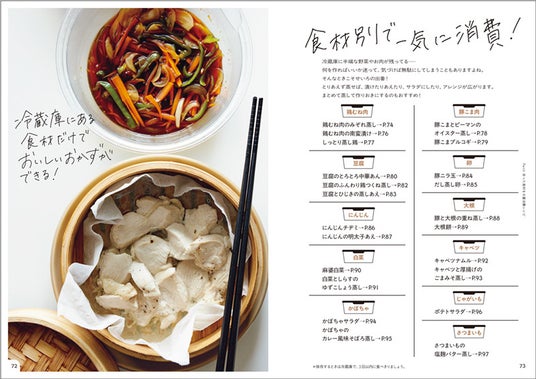 冷蔵庫にある
食材だけで
おいしいおかずが
できる！
72
食材別で一気に消費！
冷蔵庫に半端な野菜やお肉が残ってる…
何を作ればいいか迷って、気づけば無駄にしてしまうこともありますよね。
そんなときこそせいろの出番！
とりあえず蒸せば、漬けたりあえたり、サラダにしたり、アレンジが広がります。
まとめて蒸して作りおきにするのもおすすめ！
鶏むね肉
鶏むね肉のみぞれ蒸し→P.74
鶏むね肉の南蛮漬け→P.76
しっとり蒸し鶏→P.77
豆腐
豆腐のとろとろ中華あん→P.80
豆腐のふんわり鶏つくね蒸し→P.82
豆腐とひじきの蒸しあえ→P.83
にんじん
にんじんチヂミ→P.86
にんじんの明太子あえ→P.87
白菜
麻婆白菜→P.90
白菜としらすの
ゆずこしょう蒸し→P.91
かぼちゃ
かぼちゃサラダ→P.94
かぼちゃの
カレー風味そぼろ蒸し→P.95
豚こま肉
豚こまとピーマンの
オイスター蒸し→P.78
豚こまプルコギ→P.79
卵
豚ニラ玉→P.84
だし蒸し卵→P.85
大根
豚と大根の重ね蒸し→P.88
大根餅→P.89
キャベツ
キャベツナムル→P.92
キャベツと厚揚げの
ごまみそ蒸し→P.93
じゃがいも
ポテトサラダ→P.96
さつまいも
さつまいもの
塩麹バター蒸し→P.97
＊保存するときは冷蔵庫で、2日以内に食べきりましょう。
73